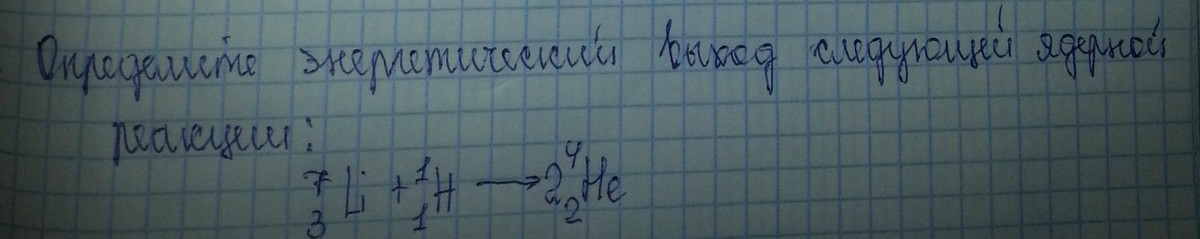 Определите энергетический выход следующей ядерной
реакции:
⁷₃Li + ¹₁H → 2⁴₂He